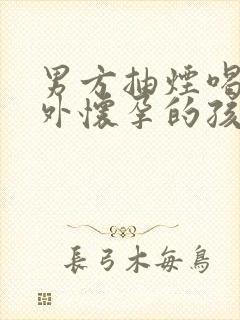 男方抽煙喝
外懷孕的孩
長弓木每鳥